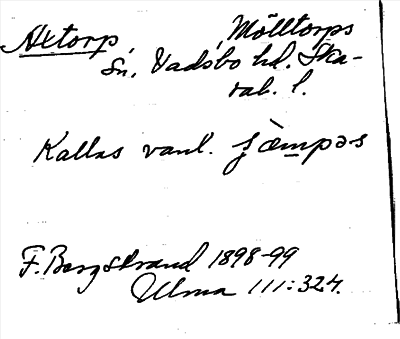 Axtorp, Mölltorps
sn, Vadsbo hd. Ska-
rab. l.
Kallas vanl.
F. Bergstrand 1898-99
Ulma 111:324.